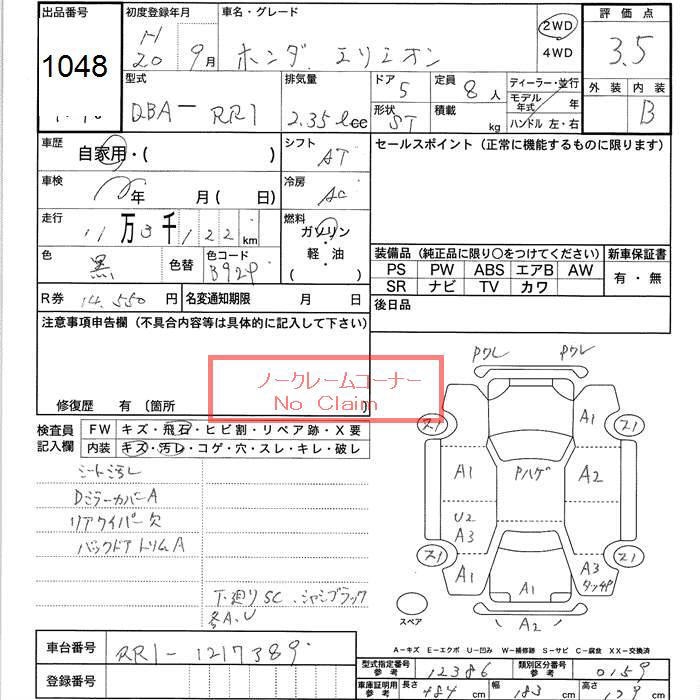 出品番号 初度登録年月 車名・グレード 2WD 評価点
1048 H 20 9月 ホンダ エリシオン 4WD 3.5
型式 排気量 ドア 定員 ディーラー・並行 外装 内装
DBA－RR1 2.35ℓcc 5 8人 モデル年式 年 B
形状 積載 ハンドル 左・右
ST kg
車歴 シフト セールスポイント (正常に機能するものに限ります)
自家用・( ) AT
車検 冷房
年 月( 日) AC
走行 燃料
11万3千122km ガソリン・軽油
色 色替 色コード ( )
黒 B92P
装備品 (純正品に限り○をつけてください) 新車保証書
PS PW ABS エアB AW 有・無
SR ナビ TV カワ
R券 14,550円 名変通知期限 月 日 後日品
注意事項申告欄 (不具合内容等は具体的に記入して下さい)
ノークレームコーナー
No Claim
修復歴 有 〔箇所 〕
検査員記入欄 FW キズ・飛石・ヒビ割・リペア跡・X要
内装 キズ・汚レ・コゲ・穴・スレ・キレ・破レ
シート汚レ
Dミラーカバー A
リアワイパー欠
バックドアトリム A
下廻りSC、シャシブラック
多A、U
Pワレ Pワレ
ス1 A1 ス1
A1 Pハゲ A2
U2
A3
ス1 ス1
A1 A1 A3 タッチP
スペア A2
A－キズ E－エクボ U－凹み W－補修跡 S－サビ C－腐食 XX－交換済
車台番号 RR1-1217389
登録番号
型式指定番号参考 12386 類別区分番号参考 0159
車庫証明用参考 長さ 484cm 幅 183cm 高さ 179cm